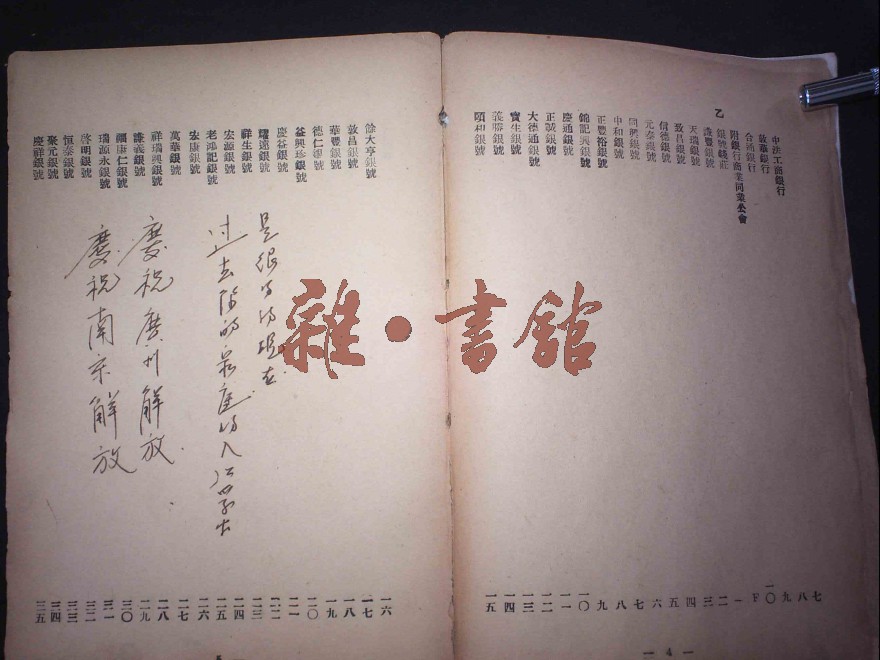 中法工商銀行
敦華銀行
合通銀行
附銀行商業同業公會
乙 銀號錢莊
謙豐銀號
天瑞銀號
致昌銀號
信德銀號
元泰銀號
同興銀號
中和銀號
正豐裕銀號
錦記興銀號
慶通銀號
正誠銀號
大德通銀號
寶生銀號
義勝銀號
頤和銀號
七
八
九
一〇
一
二
三
四
五
六
七
八
九
一〇
一一
一二
一三
一四
一五
— 4 —
餘大亨銀號
敦昌銀號
華豐銀號
德仁銀號
益興珍銀號
慶益銀號
耀遠銀號
祥生銀號
宏源銀號
老鴻記銀號
宏康銀號
萬華銀號
祥瑞興銀號
謙義銀號
瑞源永銀號
啓明銀號
恒泰銀號
聚元銀號
慶祥銀號
一六
一七
一八
一九
二〇
二一
二二
二三
二四
二五
二六
二七
二八
二九
三〇
三一
三二
三三
三四
三五
慶祝廣州解放
慶祝南京解放
雜·書館